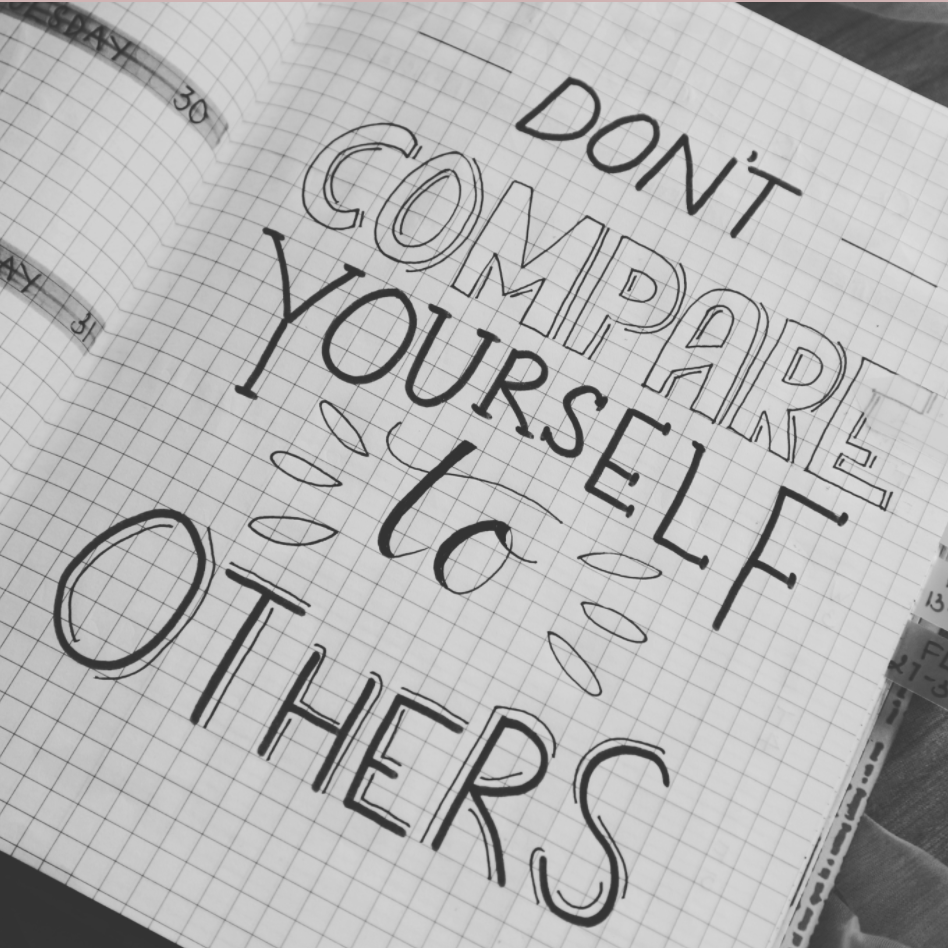 30
31
DON'T
COMPARE
YOURSELF
to
OTHERS
13